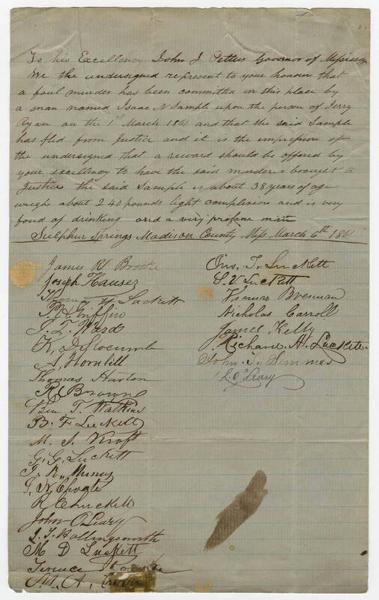 To his Excellency John J. Pettus Governor of Mississippi
We the undersigned represent to your honour that
a foul murder has been committed in this place by
a man named Isaac N Sample upon the person of Jerry
Ryan on the 1st March 1861 and that the said Sample
has fled from Justice and it is the impression of
the undersigned that a reward should be offered by
your excellency to have the said murderer brought a
Justice the said Sample is about 38 years of age
weighs about 240 pounds light complexion and is very
fond of drinking and a very profane man
Sulphur Springs Madison County Miss March 6th 1861
James W
Joseph Hauser
Luckett
R Griffin
J. T. Ward
Slocumb
Hornbill
Thomas Horton
Brown
Ben T. Watkins
B. F. Luckett
M. S. Kraft
G. G. Luckett
J. R.
R Luckett
John O'Leary
S. T. Hollingsworth
M D Luckett
Terence
A.
Jno. T. Luckett
S. V. Luckett
Thomas Brennan
Nicholas Carroll
James Kelly
Richard H. Luckett
John T. Simmes
L. O'Leary